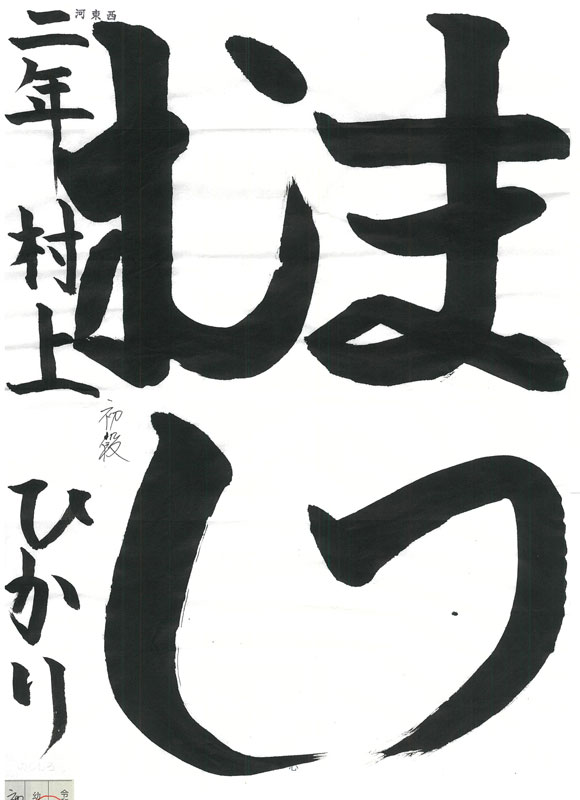 まつ
むし
二年 村上 ひかり
初段
西東河